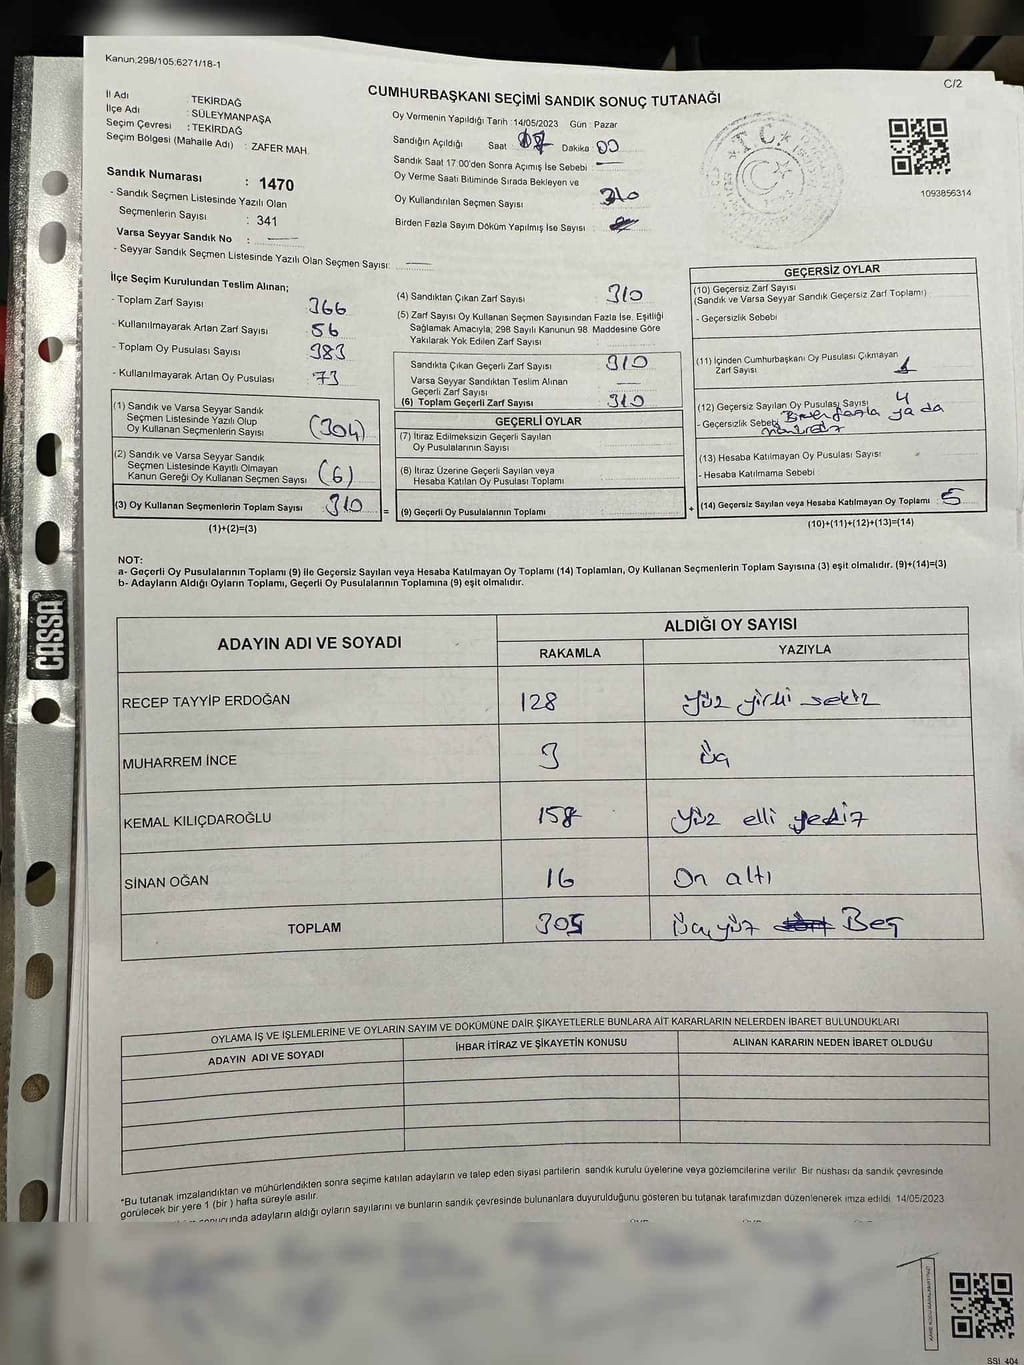 Kanun.298/105.6271/18-1
C/2
CUMHURBAŞKANI SEÇİMİ SANDIK SONUÇ TUTANAĞI
İl Adı : TEKİRDAĞ
İlçe Adı : SÜLEYMANPAŞA
Seçim Çevresi : TEKİRDAĞ
Seçim Bölgesi (Mahalle Adı) : ZAFER MAH.
Sandık Numarası : 1470
- Sandık Seçmen Listesinde Yazılı Olan
Seçmenlerin Sayısı : 341
Varsa Seyyar Sandık No :
- Seyyar Sandık Seçmen Listesinde Yazılı Olan Seçmen Sayısı:
Oy Vermenin Yapıldığı Tarih :14/05/2023 Gün : Pazar
Sandığın Açıldığı Saat Dakika 00
Sandık Saat 17:00'den Sonra Açımış İse Sebebi :
Oy Verme Saati Bitiminde Sırada Bekleyen ve
Oy Kullandırılan Seçmen Sayısı 310
Birden Fazla Sayım Döküm Yapılmış İse Sayısı :
T.C.
1093856314
İlçe Seçim Kurulundan Teslim Alınan;
- Toplam Zarf Sayısı 366
- Kullanılmayarak Artan Zarf Sayısı 56
- Toplam Oy Pusulası Sayısı 383
- Kullanılmayarak Artan Oy Pusulası 73
(1) Sandık ve Varsa Seyyar Sandık
Seçmen Listesinde Yazılı Olup
Oy Kullanan Seçmenlerin Sayısı (304)
(2) Sandık ve Varsa Seyyar Sandık
Seçmen Listesinde Kayıtlı Olmayan
Kanun Gereği Oy Kullanan Seçmen Sayısı (6)
(3) Oy Kullanan Seçmenlerin Toplam Sayısı 310
(1)+(2)=(3)
=
(4) Sandıktan Çıkan Zarf Sayısı 310
(5) Zarf Sayısı Oy Kullanan Seçmen Sayısından Fazla İse. Eşitliği
Sağlamak Amacıyla; 298 Sayılı Kanunun 98. Maddesine Göre
Yakılarak Yok Edilen Zarf Sayısı
Sandıkta Çıkan Geçerli Zarf Sayısı 310
Varsa Seyyar Sandıktan Teslim Alınan
Geçerli Zarf Sayısı
(6) Toplam Geçerli Zarf Sayısı 310
GEÇERLİ OYLAR
(7) İtiraz Edilmeksizin Geçerli Sayılan
Oy Pusulalarının Sayısı
(8) İtiraz Üzerine Geçerli Sayılan veya
Hesaba Katılan Oy Pusulası Toplamı
(9) Geçerli Oy Pusulalarının Toplamı
+
GEÇERSİZ OYLAR
(10) Geçersiz Zarf Sayısı
(Sandık ve Varsa Seyyar Sandık Geçersiz Zarf Toplamı)
- Geçersizlik Sebebi
(11) İçinden Cumhurbaşkanı Oy Pusulası Çıkmayan
Zarf Sayısı 1
(12) Geçersiz Sayılan Oy Pusulası Sayısı 4
- Geçersizlik Sebebi fazla ya da
(13) Hesaba Katılmayan Oy Pusulası Sayısı
- Hesaba Katılmama Sebebi
(14) Geçersiz Sayılan veya Hesaba Katılmayan Oy Toplamı 5
(10)+(11)+(12)+(13)=(14)
NOT:
a- Geçerli Oy Pusulalarının Toplamı (9) ile Geçersiz Sayılan veya Hesaba Katılmayan Oy Toplamı (14) Toplamları, Oy Kullanan Seçmenlerin Toplam Sayısına (3) eşit olmalıdır. (9)+(14)=(3)
b- Adayların Aldığı Oyların Toplamı, Geçerli Oy Pusulalarının Toplamına (9) eşit olmalıdır.
ADAYIN ADI VE SOYADI
ALDIĞI OY SAYISI
RAKAMLA YAZIYLA
RECEP TAYYİP ERDOĞAN 128 Yüz yirmi sekiz
MUHARREM İNCE 3 Üç
KEMAL KILIÇDAROĞLU 158 Yüz elli sekiz
SİNAN OĞAN 16 On altı
TOPLAM 305 Üç yüz Beş
OYLAMA İŞ VE İŞLEMLERİNE VE OYLARIN SAYIM VE DÖKÜMÜNE DAİR ŞİKAYETLERLE BUNLARA AİT KARARLARIN NELERDEN İBARET BULUNDUKLARI
ADAYIN ADI VE SOYADI İHBAR İTİRAZ VE ŞİKAYETİN KONUSU ALINAN KARARIN NEDEN İBARET OLDUĞU
*Bu tutanak imzalandıktan ve mühürlendikten sonra seçime katılan adayların ve talep eden siyasi partilerin sandık kurulu üyelerine veya gözlemcilerine verilir. Bir nüshası da sandık çevresinde
görülecek bir yere 1 (bir ) hafta süreyle asılır.
sonucunda adayların aldığı oyların sayılarını ve bunların sandık çevresinde bulunanlara duyurulduğunu gösteren bu tutanak tarafımızdan düzenlenerek imza edildi. 14/05/2023
CASSA
SSI_404